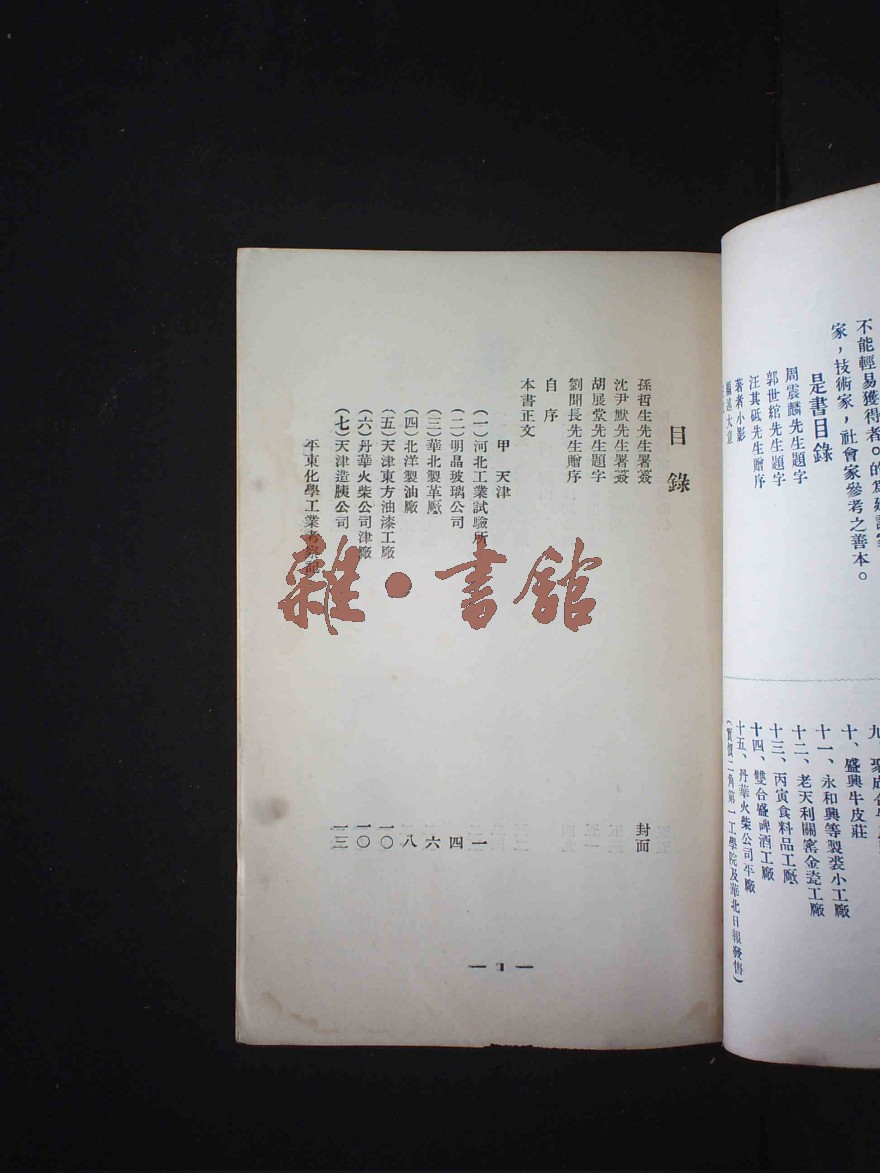 不能輕易獲得者。的爲
家，技術家，社會家參考之善本。
是書目錄
周震麟先生題字
郭世綰先生題字
汪其砥先生贈序
著者小影
大意
十、盛興牛皮莊
十一、永和興等製裘小工廠
十二、老天利關窰金瓷工廠
十三、丙寅食料品工廠
十四、雙合盛啤酒工廠
十五、丹華火柴公司平廠
(實價二角第一工學院及華北日報發售)
目錄
孫哲生先生署簽 封面
沈尹默先生署簽
胡展堂先生題字
劉聞長先生贈序
自序
本書正文
甲 天津
(一)河北工業試驗所 一
(二)明晶玻璃公司 四
(三)華北製革廠 六
(四)北洋製油廠 八
(五)天津東方油漆工廠 一〇
(六)丹華火柴公司津廠 一〇
(七)天津造胰公司 一三
平東化學工業考察記
— 1 —
雜·書館